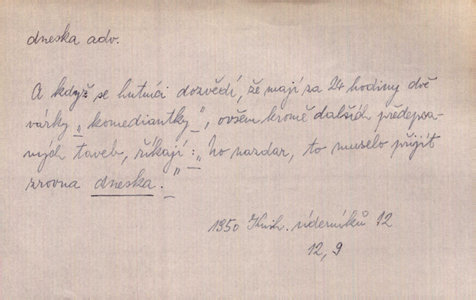 dneska adv.
A když se hutníci dozvědí, že mají za 24 hodiny dvě
várky „komediantky", ovšem kromě dalších předepsa-
ných taveb, říkají: „No nazdar, to muselo přijít
zrovna dneska."
1950 Knih. úderníků 12
12, 9